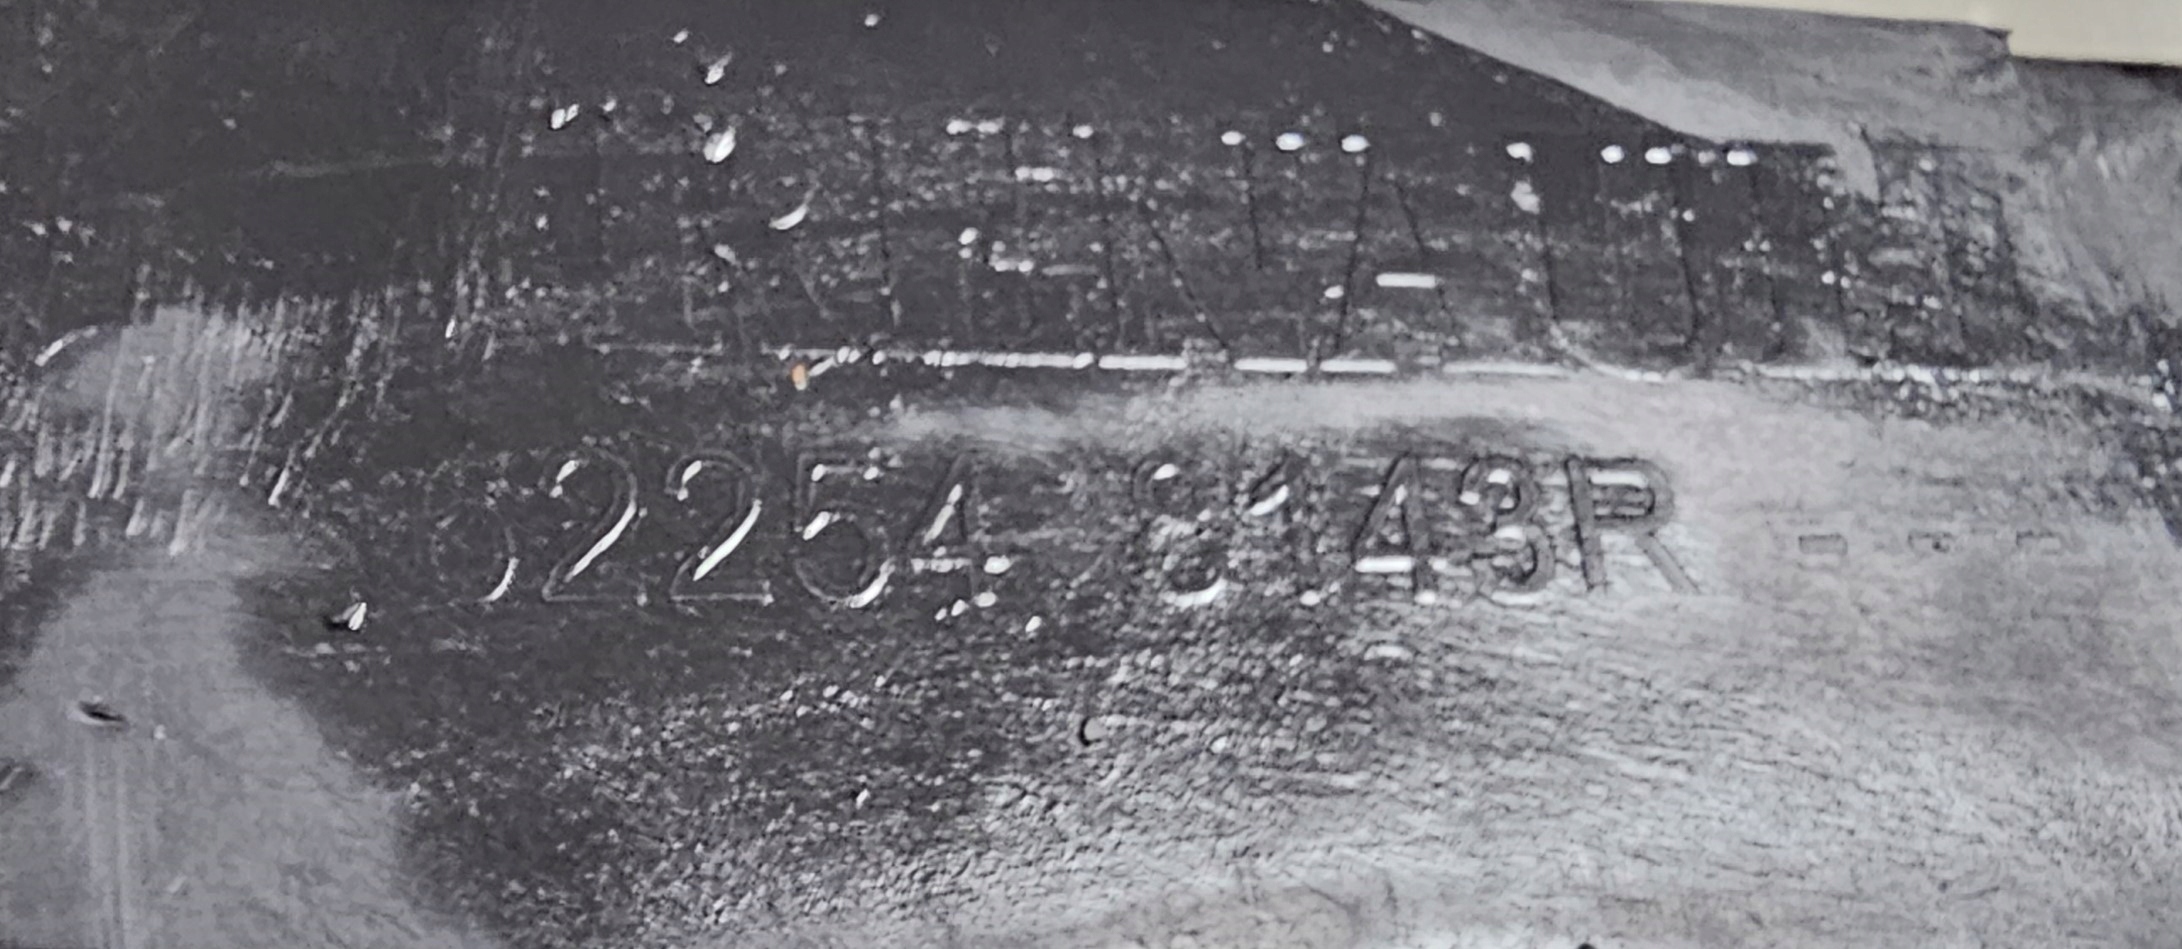 RENAULT
82254 8143R ---